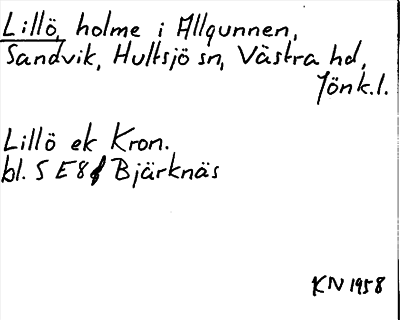 Lillö, holme i Allgunnen,
Sandvik, Hultsjö sn, Västra hd,
Jönk.l.
Lillö ek Kron.
bl. S E8f Bjärknäs
KN 1958